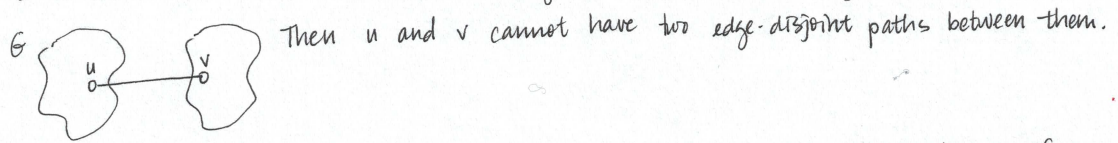 G
u
v
Then u and v cannot have two edge-disjoint paths between them.